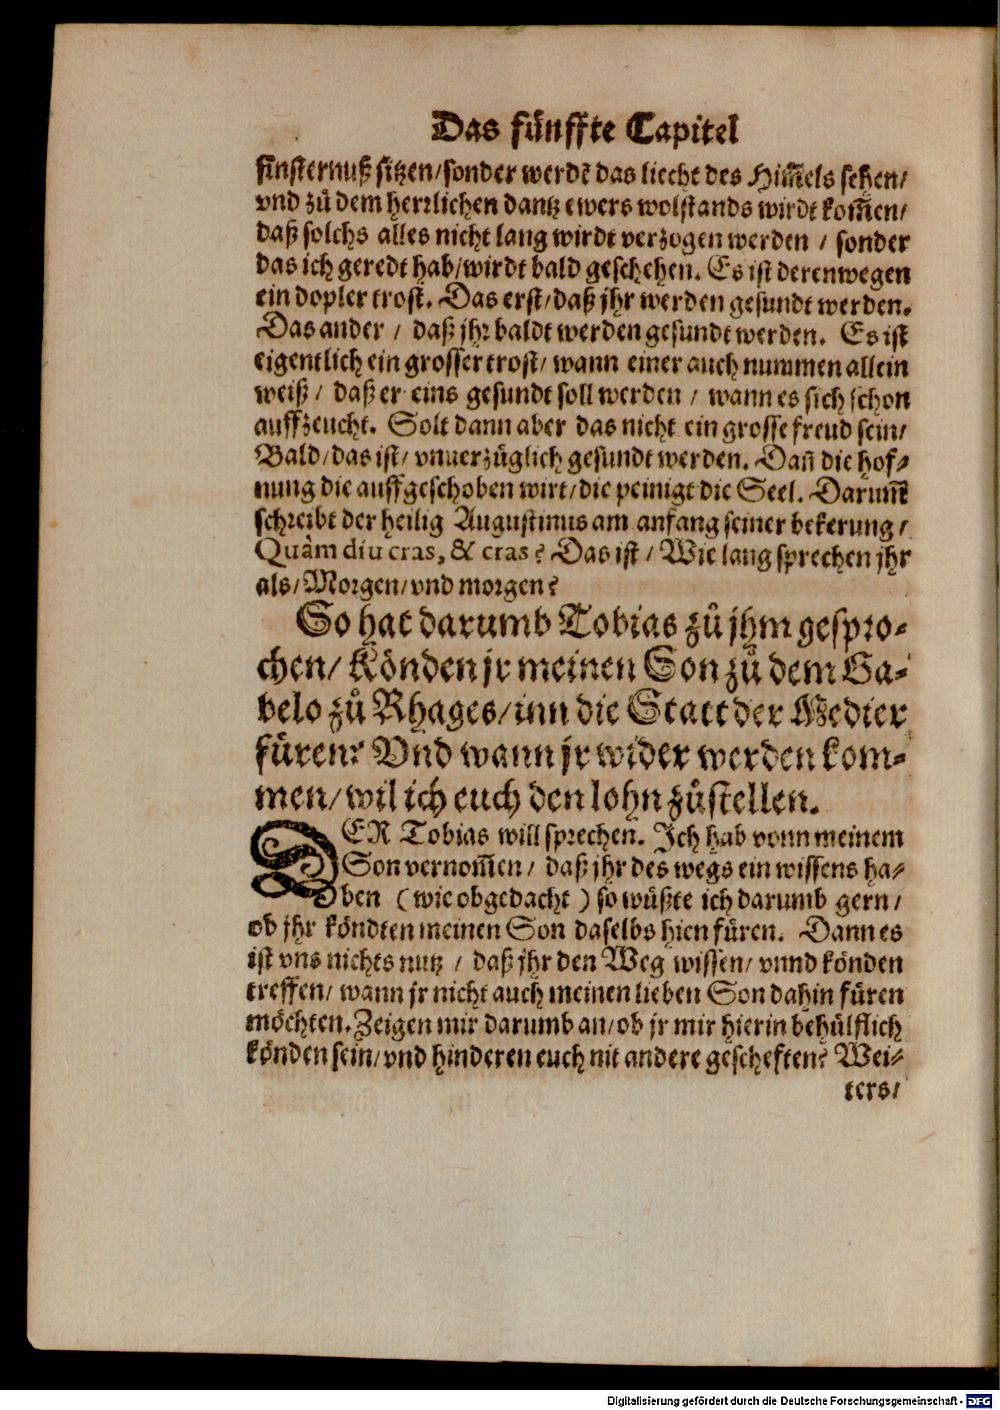 Das fünffte Capitel
finsternuß sitzen/sonder werdẽ das liecht des Him̃els sehen/
vnd zů dem herrlichen dantz ewers wolstands wirdt kom̃en/
daß solchs alles nicht lang wirdt verzogen werden / sonder
das ich geredt hab/wirdt bald geschehen. Es ist derenwegen
ein dopler trost. Das erst/daß jhr werden gesundt werden.
Das ander / daß jhr baldt werden gesundt werden. Es ist
eigentlich ein grosser trost/ wann einer auch nummen allein
weiß / daß er eins gesundt soll werden / wann es sich schon
auffzeucht. Solt dann aber das nicht ein grosse freud sein/
Bald/das ist/ vnuerzüglich gesundt werden. Dañ die hof-
nung die auffgeschoben wirt/die peinigt die Seel. Darum̃
schreibt der heilig Augustinus am anfang seiner bekerung/
Quàm diu cras, & cras? Das ist / Wie lang sprechen jhr
als/Morgen/vnd morgen?
So hat darumb Tobias zů jhm gespro-
chen/ Könden jr meinen Son zů dem Ga-
belo zů Rhages/inn die Statt der Medier
füren? Vnd wann jr wider werden kom-
men/wil ich euch den lohn zůstellen.
DER Tobias will sprechen. Ich hab vonn meinem
Son vernom̃en/ daß jhr des wegs ein wissens ha-
ben (wie obgedacht) so wüßte ich darumb gern/
ob jhr köndten meinen Son daselbs hien füren. Dann es
ist vns nichts nutz / daß jhr den Weg wissen/ vnnd könden
treffen/ wann jr nicht auch meinen lieben Son dahin füren
möchten. Zeigen mir darumb an/ob jr mir hierin behülfflich
könden sein/vnd hinderen euch nit andere gescheften? Wei-
ters/
Digitalisierung gefördert durch die Deutsche Forschungsgemeinschaft - DFG